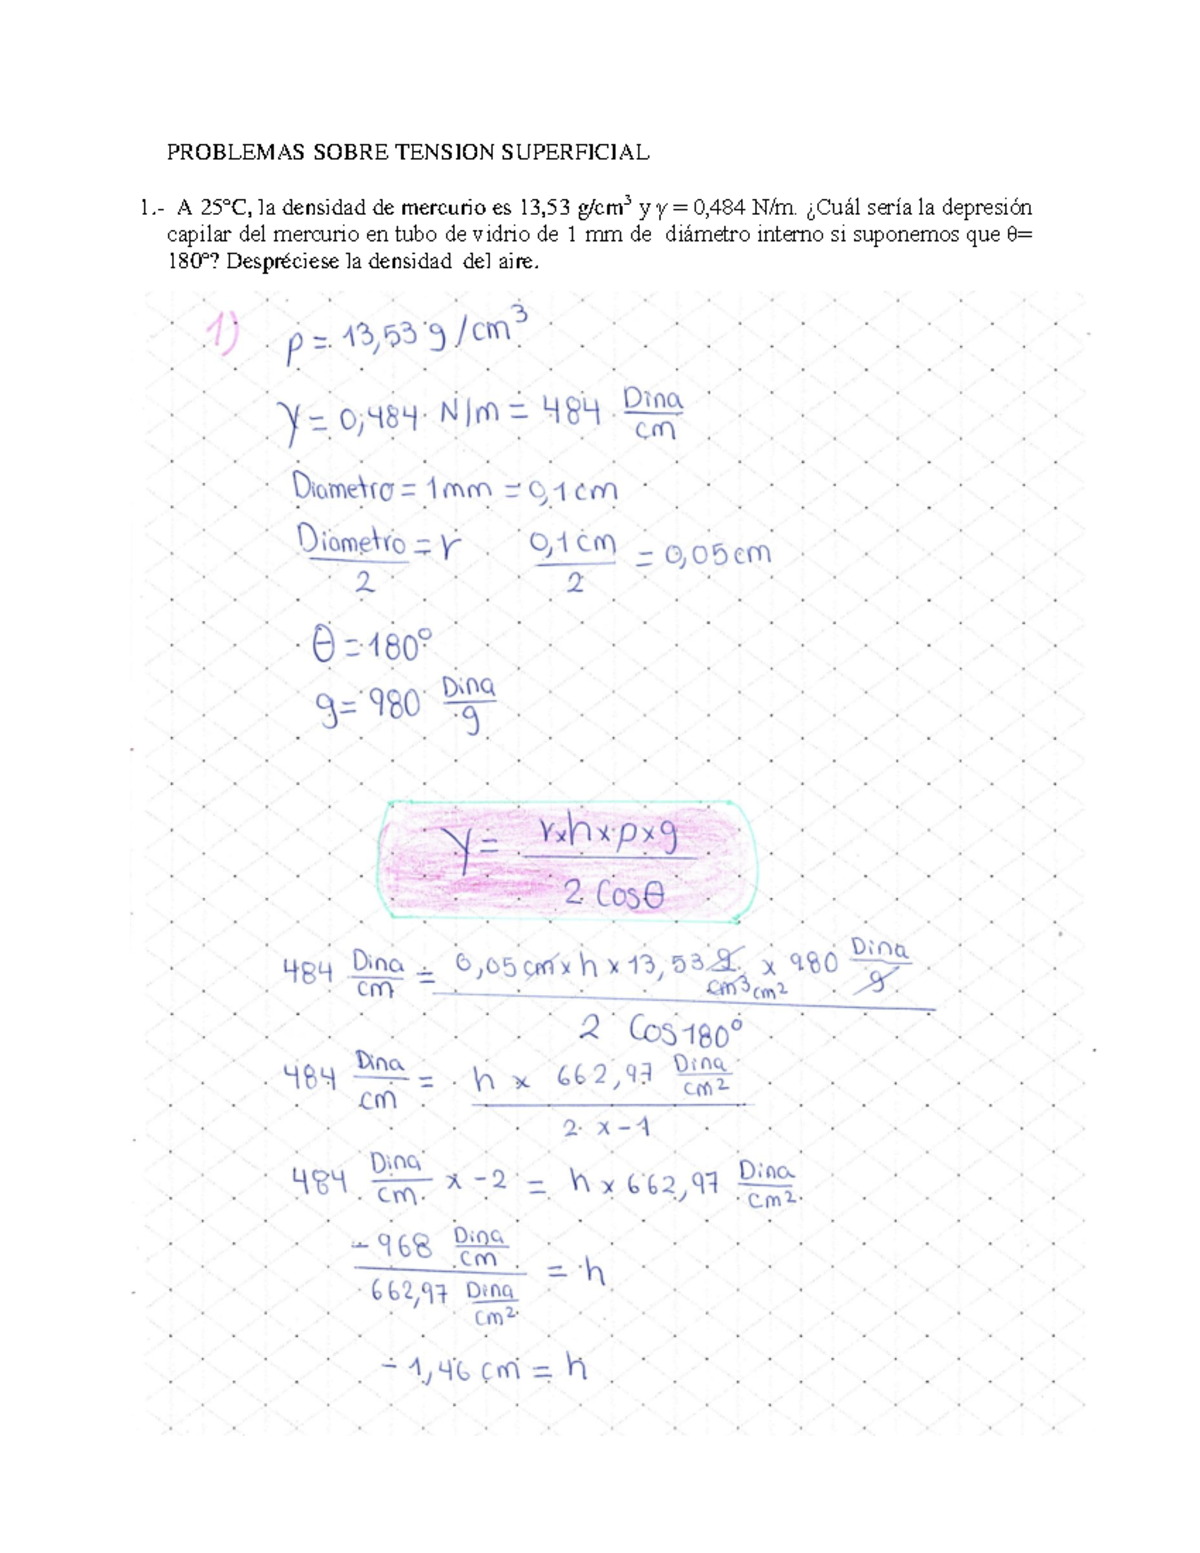 PROBLEMAS SOBRE TENSION SUPERFICIAL
1.- A 25ºC, la densidad de mercurio es 13,53 g/cm³ y γ = 0,484 N/m. ¿Cuál sería la depresión
capilar del mercurio en tubo de vidrio de 1 mm de diámetro interno si suponemos que θ=
180º? Despréciese la densidad del aire.
1) ρ = 13,53 g/cm³
γ = 0,484 N/m = 484 Dina/cm
Diametro = 1mm = 0,1cm
Diametro/2 = r 0,1cm/2 = 0,05cm
θ = 180º
g = 980 Dina/g
γ = r×h×ρ×g / 2 Cosθ
484 Dina/cm = 0,05cm × h × 13,53 g/cm³ cm² × 980 Dina/g / 2 Cos180º
484 Dina/cm = h × 662,97 Dina/cm² / 2 × -1
484 Dina/cm × -2 = h × 662,97 Dina/cm²
-968 Dina/cm / 662,97 Dina/cm² = h
-1,46 cm = h